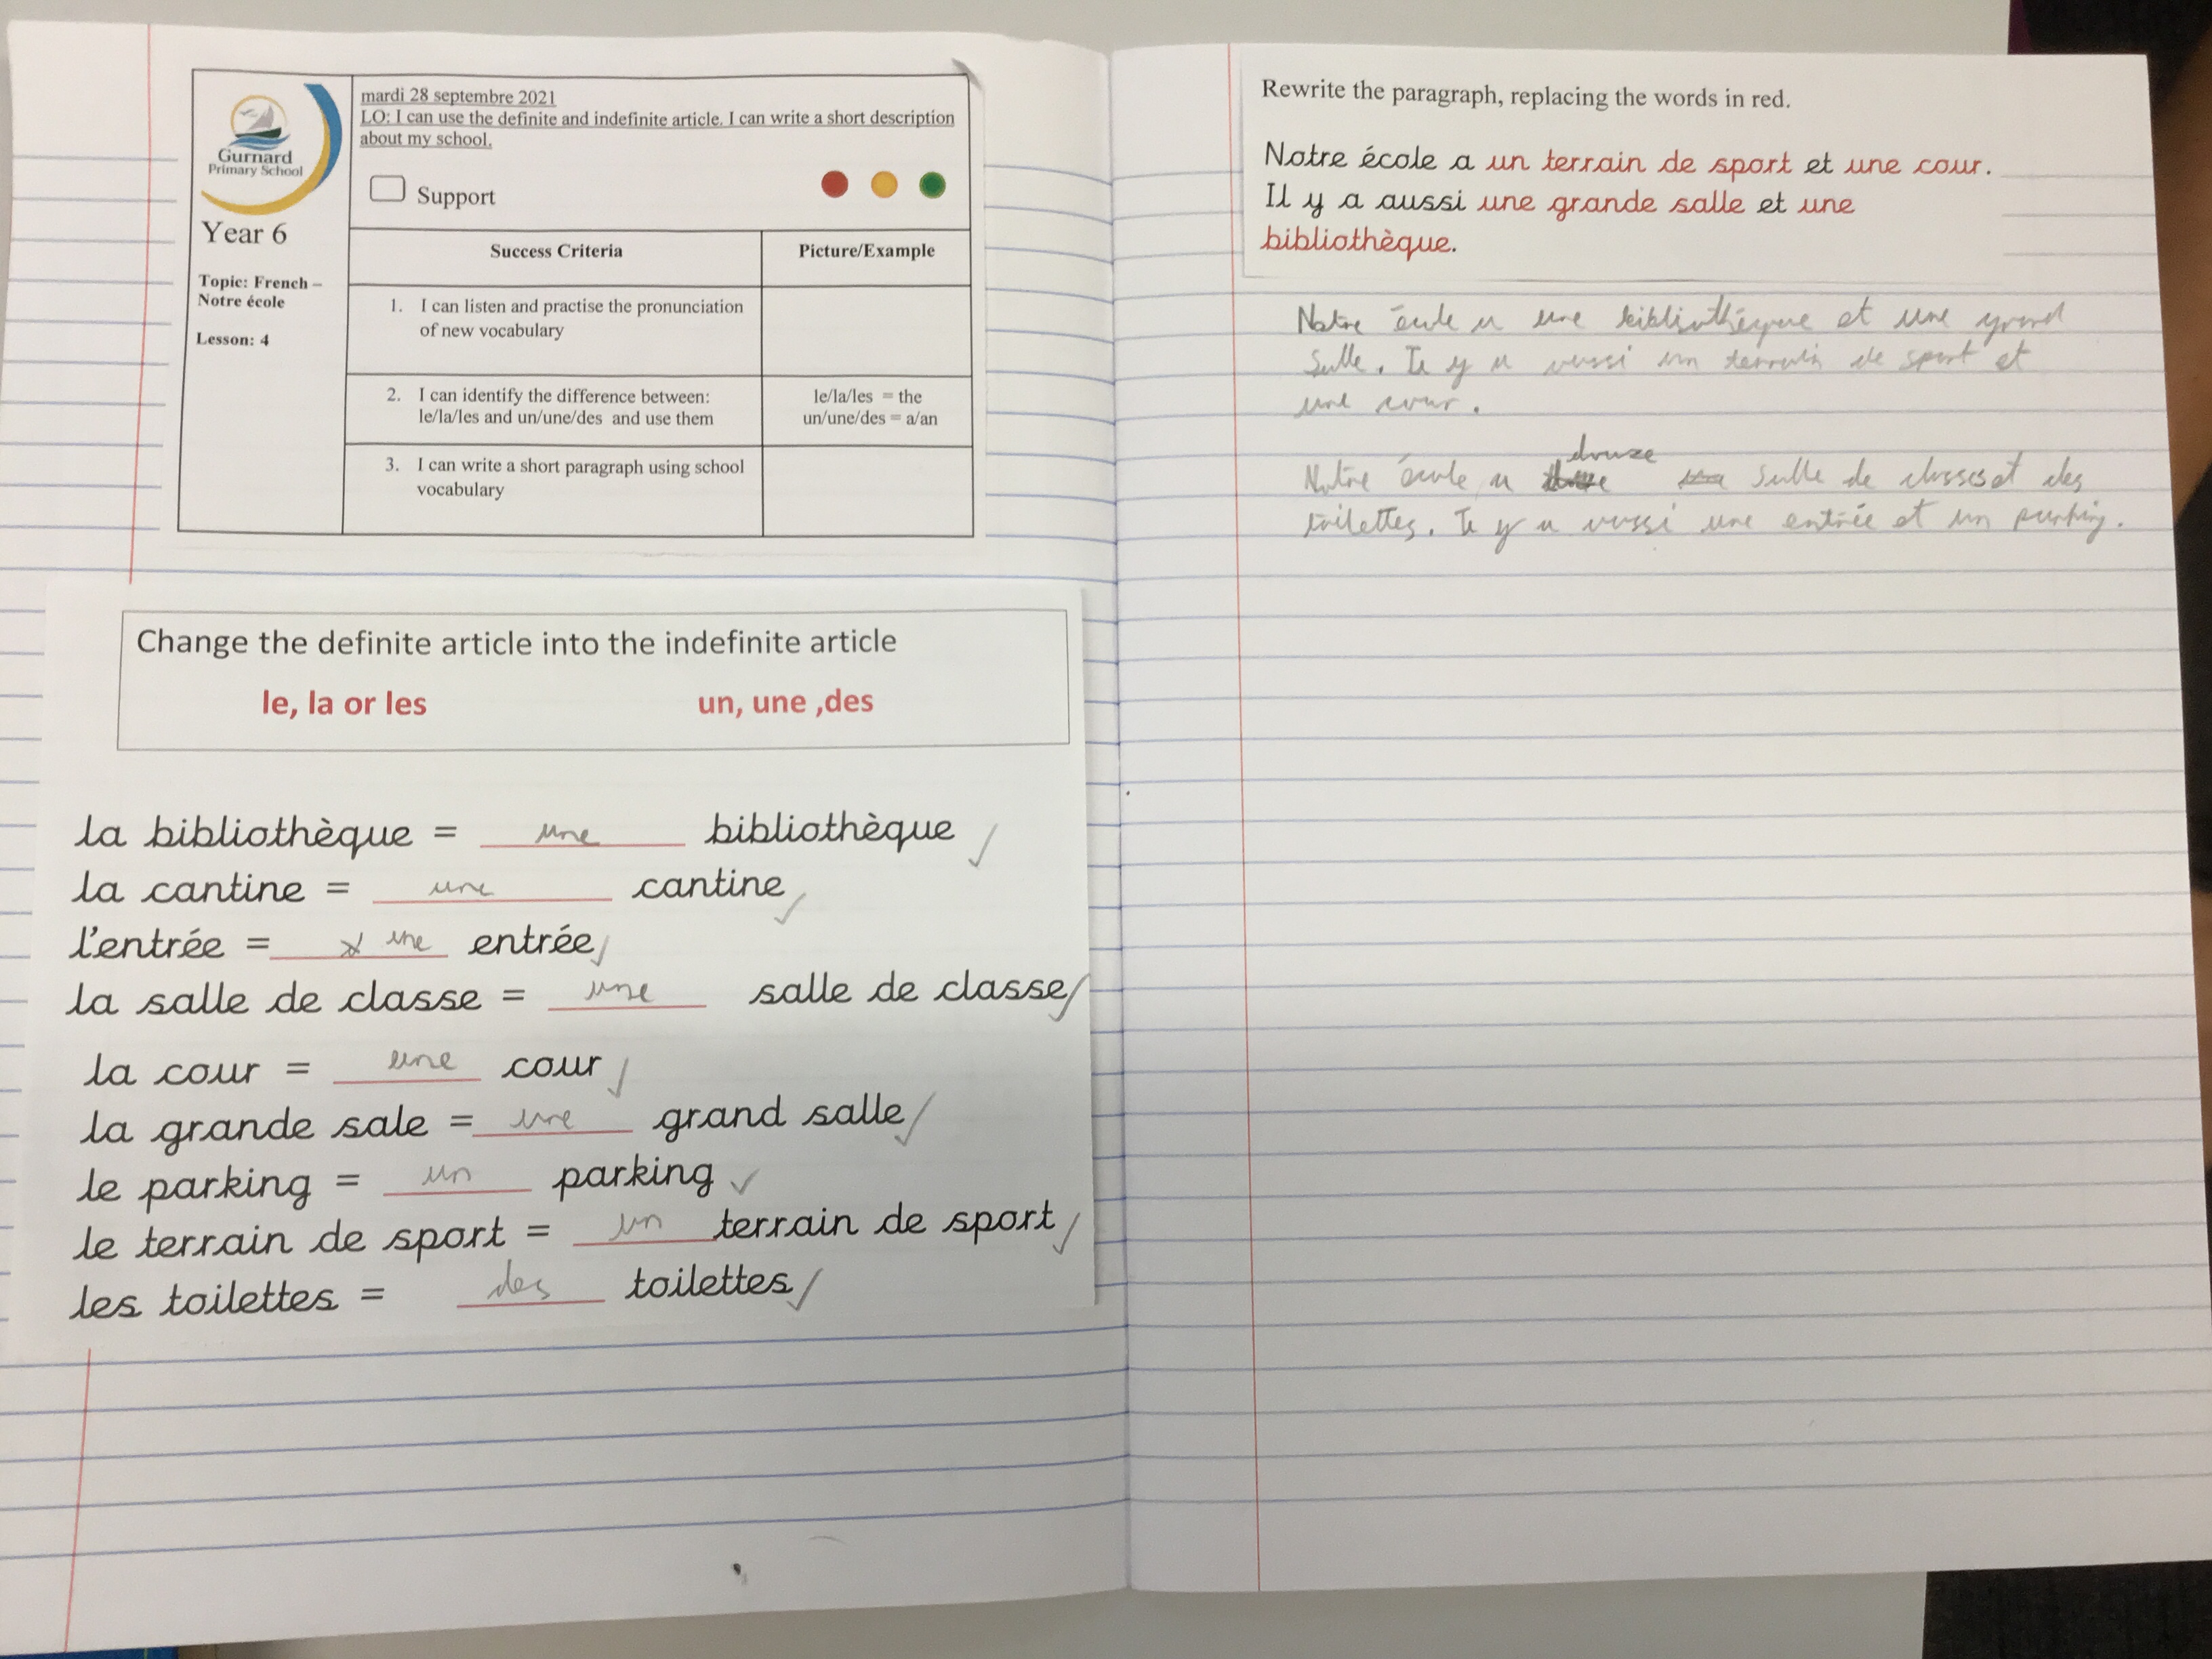 Gurnard
Primary School
Year 6
Topic: French –
Notre école
Lesson: 4
mardi 28 septembre 2021
LO: I can use the definite and indefinite article. I can write a short description
about my school.
Support
Success Criteria
Picture/Example
1. I can listen and practise the pronunciation
of new vocabulary
2. I can identify the difference between:
le/la/les and un/une/des and use them
le/la/les = the
un/une/des = a/an
3. I can write a short paragraph using school
vocabulary
Change the definite article into the indefinite article
le, la or les un, une ,des
la bibliothèque = une bibliothèque
la cantine = une cantine
l'entrée = une entrée
la salle de classe = une salle de classe
la cour = une cour
la grande sale = une grand salle
le parking = un parking
le terrain de sport = un terrain de sport
les toilettes = des toilettes
Rewrite the paragraph, replacing the words in red.
Notre école a un terrain de sport et une cour.
Il y a aussi une grande salle et une
bibliothèque.
Notre école a une bibliothéque et une grand
salle. Il y a aussi un terrain de sport et
une cour.
Notre école a douze salle de classes et des
toilettes. Il y a aussi une entrée et un parking.